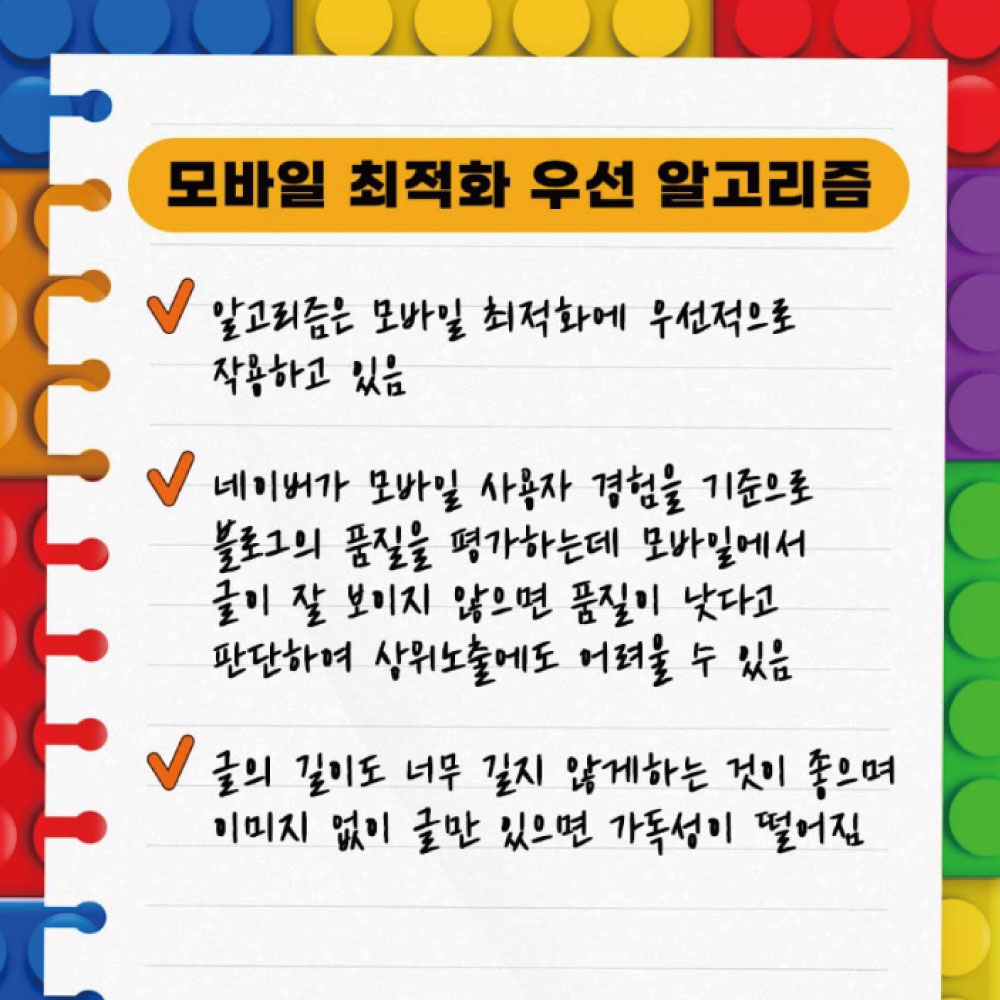 모바일 최적화 우선 알고리즘
알고리즘은 모바일 최적화에 우선적으로
작용하고 있음
네이버가 모바일 사용자 경험을 기준으로
블로그의 품질을 평가하는데 모바일에서
글이 잘 보이지 않으면 품질이 낮다고
판단하여 상위노출에도 어려울 수 있음
글의 길이도 너무 길지 않게하는 것이 좋으며
이미지 없이 글만 있으면 가독성이 떨어짐